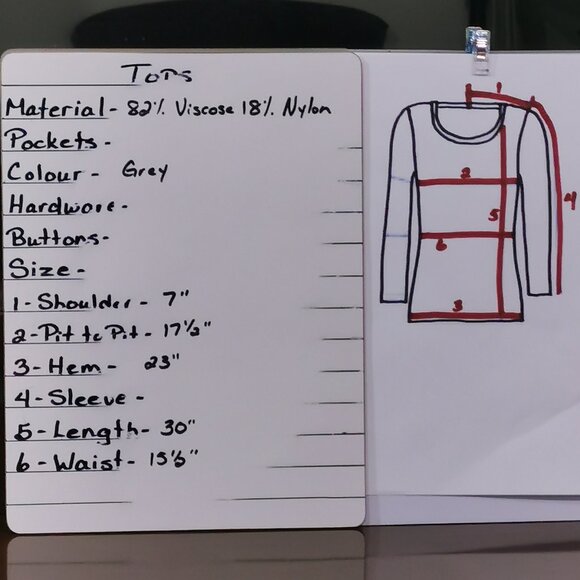 Tops
Material - 82% Viscose 18% Nylon
Pockets -
Colour - Grey
Hardware -
Buttons -
Size -
1 - Shoulder - 7"
2 - Pit to Pit - 17½"
3 - Hem - 23"
4 - Sleeve -
5 - Length - 30"
6 - Waist - 15½"
1
2
5
4
6
3